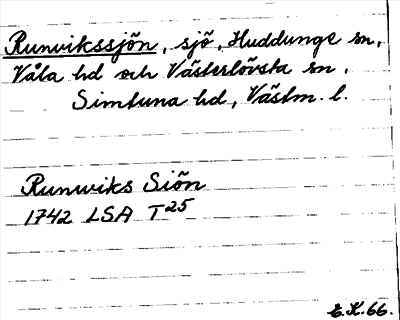 Runvikssjön, sjö, Huddunge sn,
Våla hd och Västerlövsta sn,
Simtuna hd, Västm. l.
Runwiks Siön
1742 LSA T25
E.K.66.